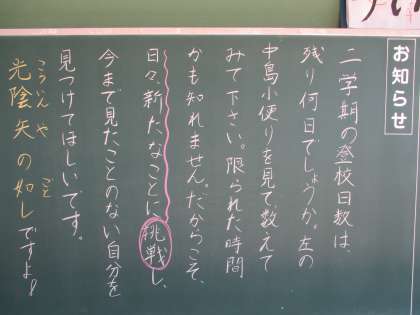 お知らせ
二学期の登校日数は、
残り何日でしょうか。左の
中島小便りを見て、数えて
みて下さい。限られた時間
かも知れません。だからこそ、
日々、新たなことに挑戦し、
今まで見たことのない自分を
見つけてほしいです。
光陰矢の如しですよ!
こういん や ごと